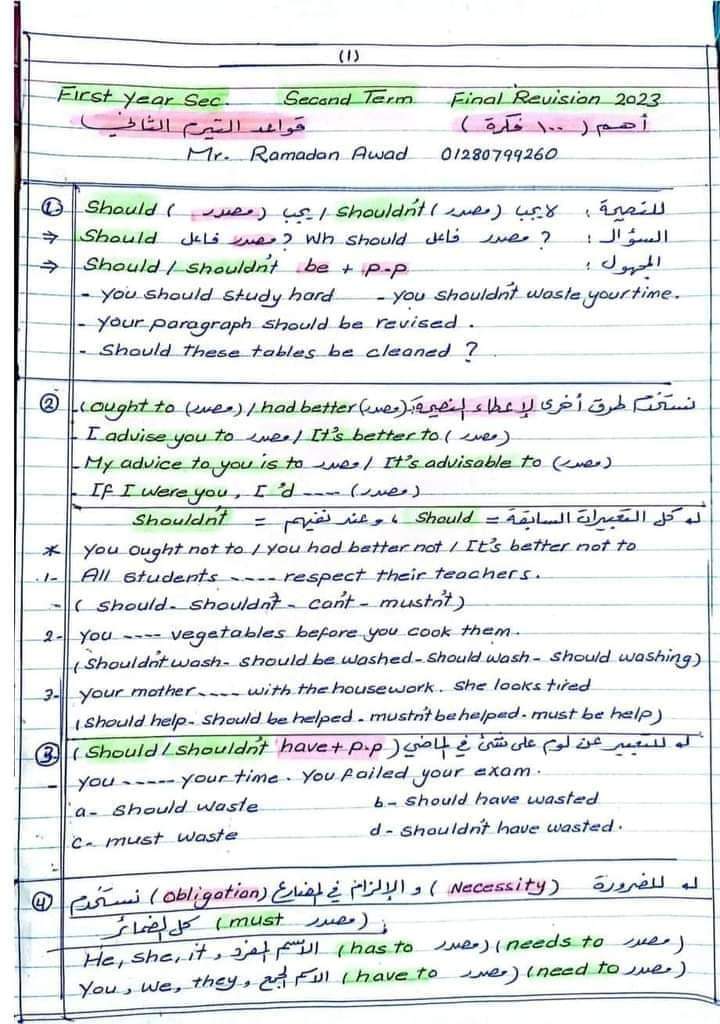 (1)
First Year Sec. Second Term Final Revision 2023
أهم (١٠٠ فكرة) قواعد التيرم الثاني
Mr. Ramadan Awad 01280799260
① Should (مصدر) يجب / shouldn't (مصدر) لا يجب للنصيحة:
⇒ Should فاعل مصدر ? Wh should فاعل مصدر ? السؤال:
⇒ Should / shouldn't be + p.p المجهول:
- You should study hard - You shouldn't waste your time.
- Your paragraph should be revised.
- Should these tables be cleaned ?
② نستخدم طرق أخرى لإعطاء النصيحة: (ought to (مصدر) / had better (مصدر)
- I advise you to مصدر / It's better to (مصدر)
- My advice to you is to مصدر / It's advisable to (مصدر)
- If I were you, I'd ---- (مصدر)
كل التعبيرات السابقة = Should ، وعند نفيهم = Shouldn't
* You ought not to / You had better not / It's better not to
1- All students ---- respect their teachers.
- (should - shouldn't - can't - mustn't)
2- You ---- vegetables before you cook them.
(Shouldn't wash - should be washed - should wash - should washing)
3- Your mother ---- with the housework. She looks tired
(should help - should be helped - mustn't be helped - must be help)
③ للتعبير عن لوم على شئ في الماضي (Should / shouldn't have + p.p)
- You ----- your time. You failed your exam.
a- should waste b- should have wasted
c- must waste d- shouldn't have wasted.
④ للضرورة (Necessity) و الإلزام في المضارع (obligation) نستخدم
(must مصدر) كل الضمائر
He, she, it, الاسم المفرد (has to مصدر) (needs to مصدر)
You, we, they, الاسم الجمع (have to مصدر) (need to مصدر)